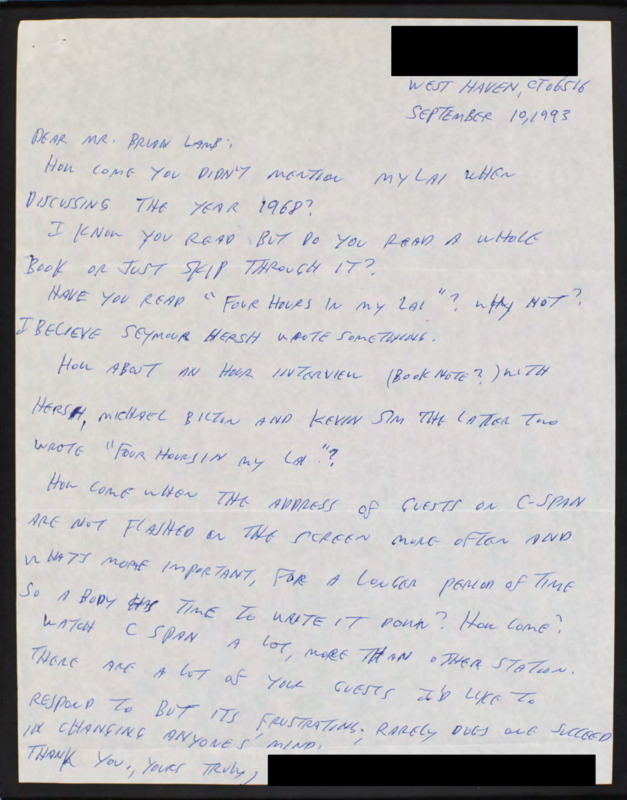 WEST HAVEN, CT 06516
SEPTEMBER 10, 1993
DEAR MR. BRIAN LAMB:
HOW COME YOU DIDN'T MENTION MY LAI WHEN
DISCUSSING THE YEAR 1968?
I KNOW YOU READ BUT DO YOU READ A WHOLE
BOOK OR JUST SKIP THROUGH IT?
HAVE YOU READ "FOUR HOURS IN MY LAI"? WHY NOT?
I BELIEVE SEYMOUR HERSH WROTE SOMETHING.
HOW ABOUT AN HOUR INTERVIEW (BOOK NOTE?) WITH
HERSH, MICHAEL BILTON AND KEVIN SIM THE LATTER TWO
WROTE "FOUR HOURS IN MY LAI"?
HOW COME WHEN THE ADDRESS OF GUESTS ON C-SPAN
ARE NOT FLASHED ON THE SCREEN MORE OFTEN AND
WHATS MORE IMPORTANT, FOR A LONGER PERIOD OF TIME
SO A BODY HAS TIME TO WRITE IT DOWN? HOW COME?
WATCH C SPAN A LOT, MORE THAN OTHER STATION.
THERE ARE A LOT OF YOUR GUESTS I'D LIKE TO
RESPOND TO BUT ITS FRUSTRATING; RARELY DOES ONE SUCCEED
IN CHANGING ANYONE'S MIND.
THANK YOU., YOURS TRULY,